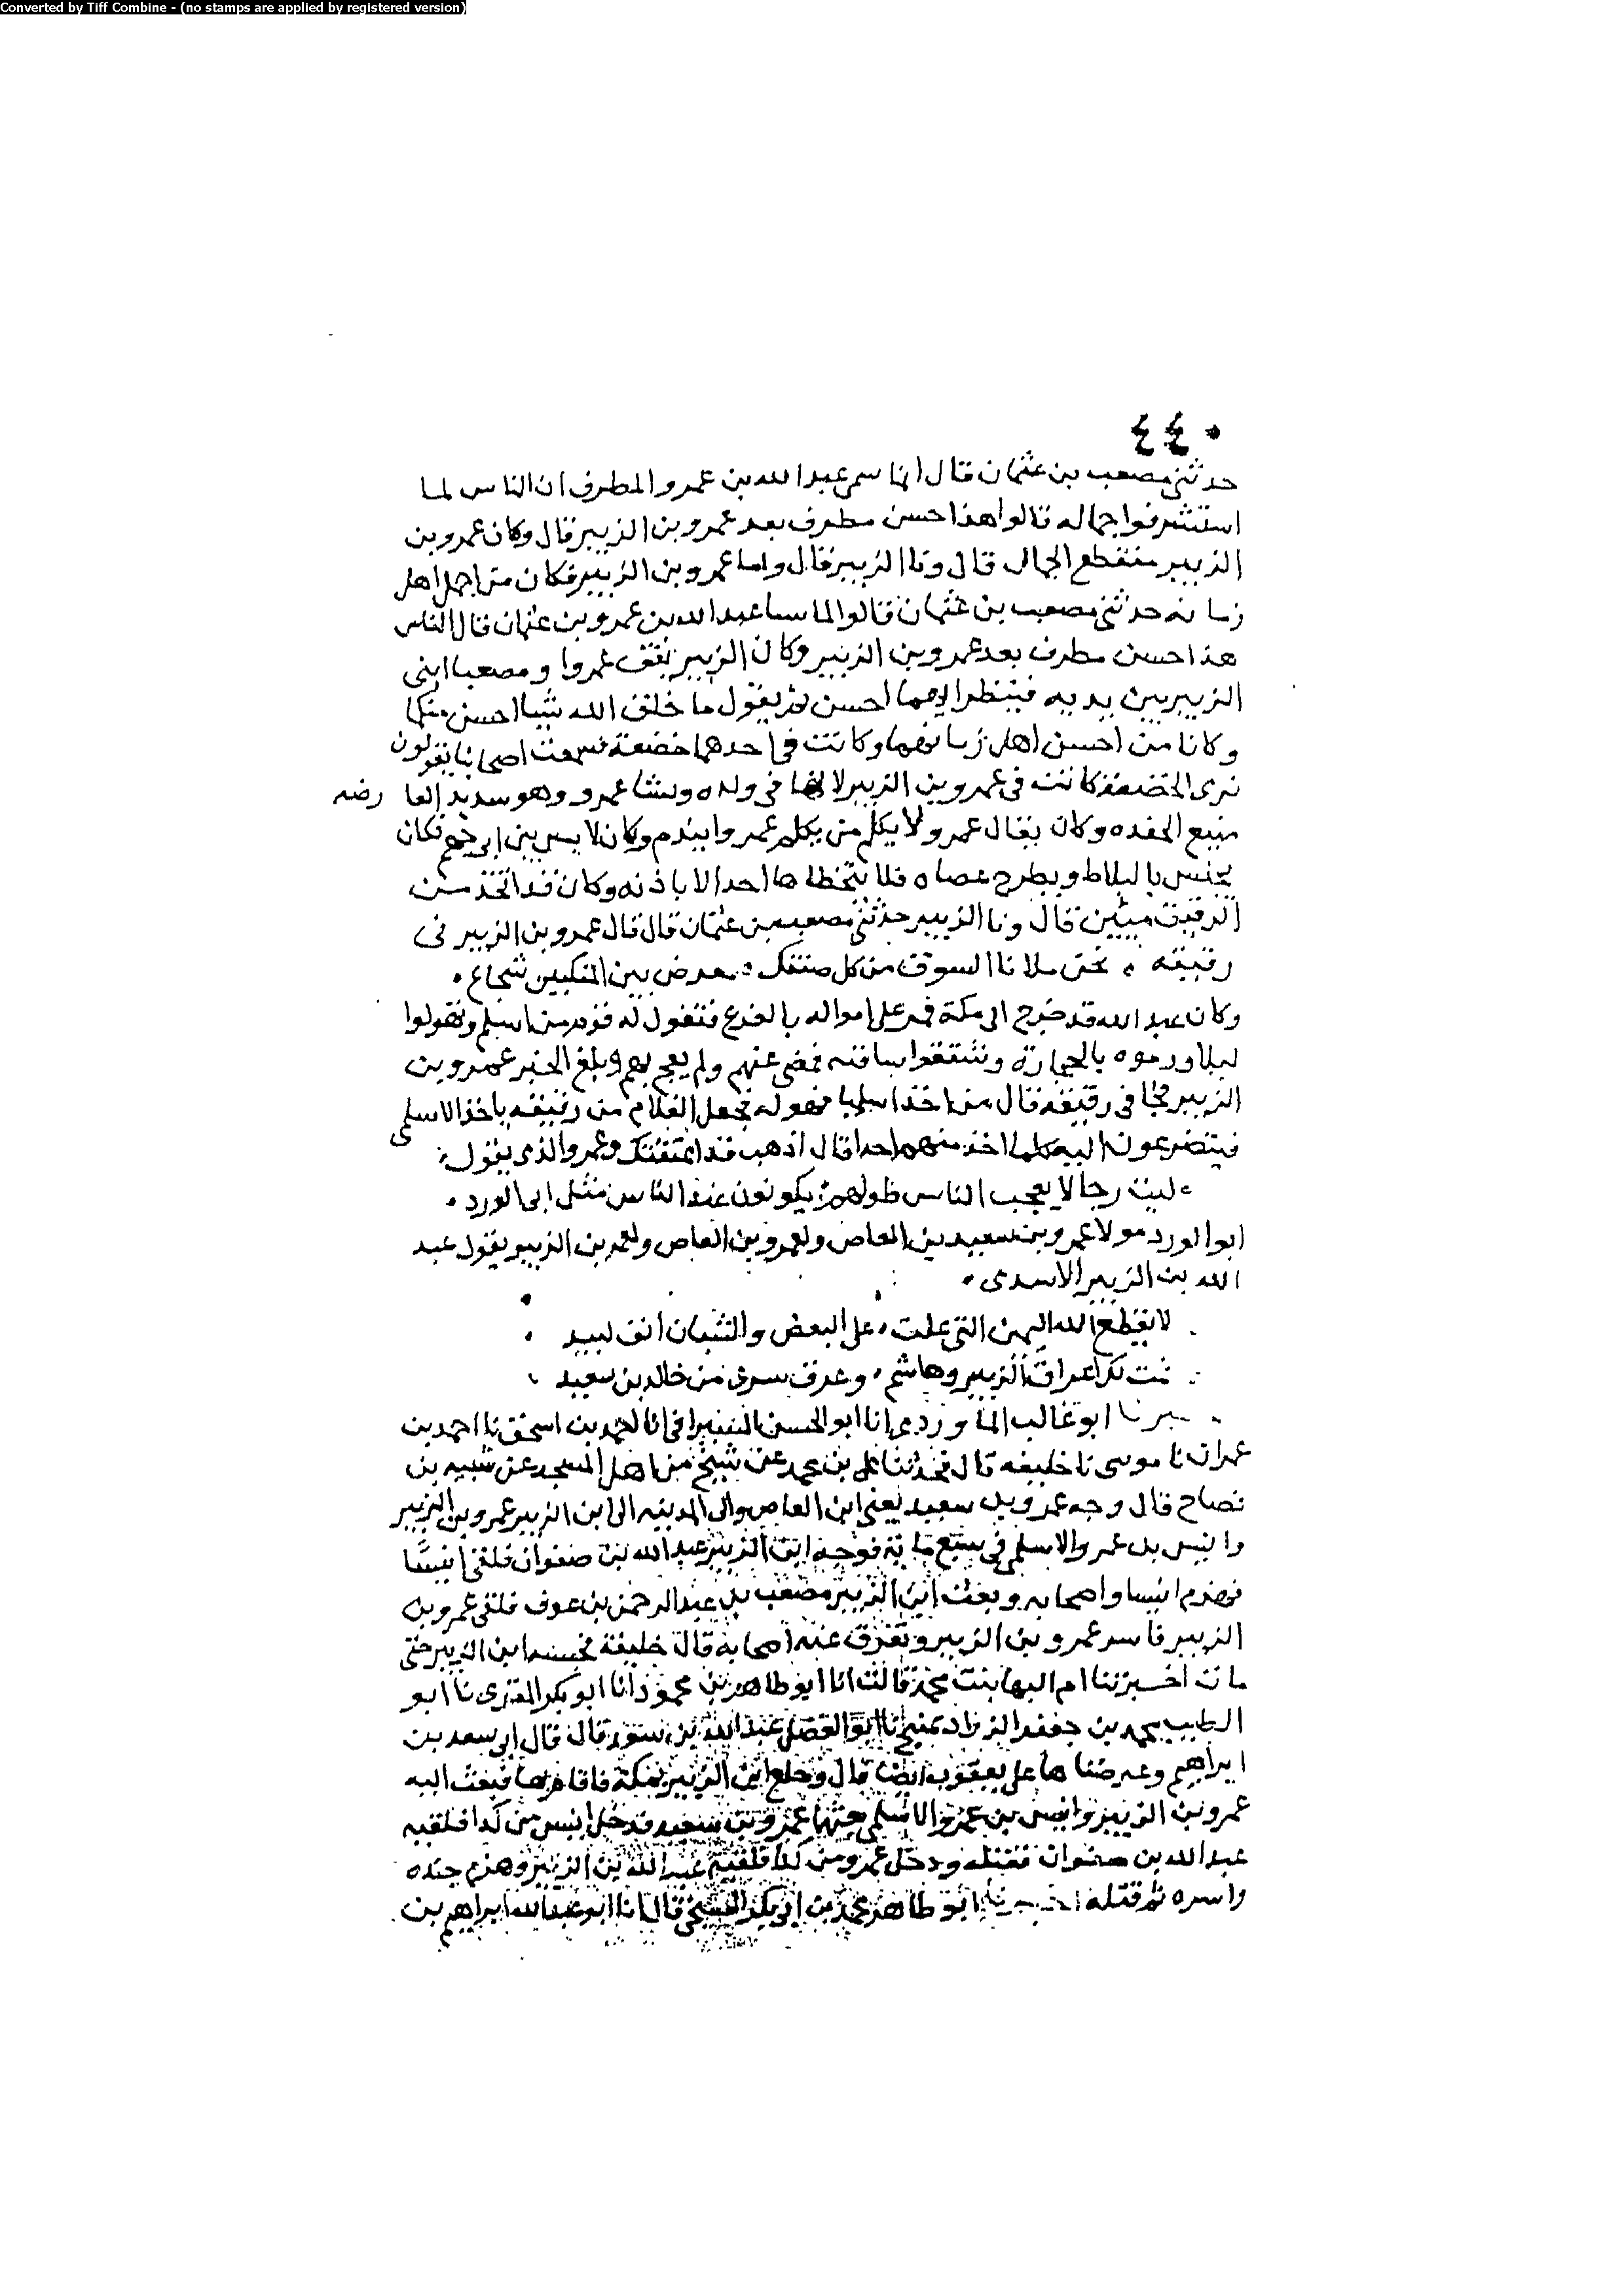 Converted by Tiff Combine - (no stamps are applied by registered version)
٤٤٠
حدثني مصعب بن عثمان قال انما سمي عبد الله بن عمرو المطرف ان الناس لما
استشرفوا جماله قالوا هذا حسن مطرف بعد عمرو بن الزبير قال وكان عمرو بن
الزبير منقطع الجمال قال ونا الزبير قال واما عمرو بن الزبير فكان من اجمل اهل
زمانه حدثني مصعب بن عثمان قالوا لما عبد الله بن عمرو بن عثمان قال الناس
هذا حسن مطرف بعد عمرو بن الزبير وكان الزبير يقف عمروا ومصعبا ابني
الزبير بين يديه فينظر ايهما احسن ثم يقول ما خلق الله شيا احسن منكما
وكانا من احسن اهل زمانهما وكانت في احدهما خضعة سمعت اصحابنا يقولون
نرى الخضعة كانت في عمرو بن الزبير لانها في ولده ونشا عمرو وهو سديد العا رضه
منيع الحفده وكان يقال عمرو لا يكلم من يكلم عمروا يندم وكان لا بين ابي جهم فكان
يجلس بالبلاط ويطرح عصاه فلا يتخطاها احد الا باذنه وكان قد اتخذ من
الرقيق ميين قال ونا الزبير حدثني مصعب بن عثمان قال قال عمرو بن الزبير في
رقيقه نحن ملانا السوق من كل بعرض بين المنكبين شجاع
وكان عبد الله قد خرج الى مكة فمر على امواله بالفرع فتغول له قوم من اسلم وتغولوا
ليلا ورموه بالحجارة وشتقوا ساقته فمضى عنهم ولم يعج بهم وبلغ الخبر عمرو بن
الزبير فجا في رقيقه قال من اخذ اسلميا فهو له فجعل الغلام من رقيقه ياخذ الاسلمي
فيتضرعون اليه كلما اخذ منهم احدا قال اذهب قد اعتقتك وعمرو الذي يقول
ليت رجالا يعجب الناس طولهم يكونون عند الناس مثل ابي الورد
ابو الورد مولا عمرو بن سعيد بن العاص ولعمرو بن العاص ولعمر بن الزبير يقول عبد
الله بن الزبير الاسدي
لا يقطع الله اليمين التي علت على البعض والشبان انف لبيد
نمت لك اعراق الزبير وهاشم وعرق سرى من خالد بن سعيد
ابو غالب الماوردي انا ابو الحسن السيرافي انا احمد بن اسحق نا احمد بن
عمران نا موسى نا خليفه قال فحدثنا علي بن محمد عن شيخ من اهل المسجد عن شيبه بن
نصاح قال وجه عمرو بن سعيد يعني ابن العاص والى المدينه الى ابن الزبير عمرو بن الزبير
وانيس بن عمرو الاسلمي في سبع ماية فوجه ابن الزبير عبد الله بن صفوان فلقي انيسا
فهزم انيسا واصحابه وبعث ابن الزبير مصعب بن عبد الرحمن بن عوف فلقي عمرو بن
الزبير فاسر عمرو بن الزبير وتفرق عنه اصحابه قال خليفة فحبسه ابن الزبير حتى
مات اخبرتنا ام البها بنت محمد قالت انا ابو طاهر بن محمود انا ابو بكر المقرى نا ابو
الطيب محمد بن جعفر الزراد بمنبج نا ابو الفضل عبد الله بن سعد قال قال ابي سعد بن
ابراهيم وعرضناها على يعقوب ايضا قال وخلع ابن الزبير بمكة فاقام بها فبعث اليه
عمرو بن الزبير وانيس بن عمرو الاسلمي عمرو بن سعيد فدخل انيس من كدا فلقيه
عبد الله بن صفوان فقتله ودخل عمرو من كدا فلقيه عبد الله بن الزبير وهزم جنده
واسره ثم قتله ابو طاهر محمد بن ابي بكر السنجي قال انا ابو عبد الله ابراهيم بن